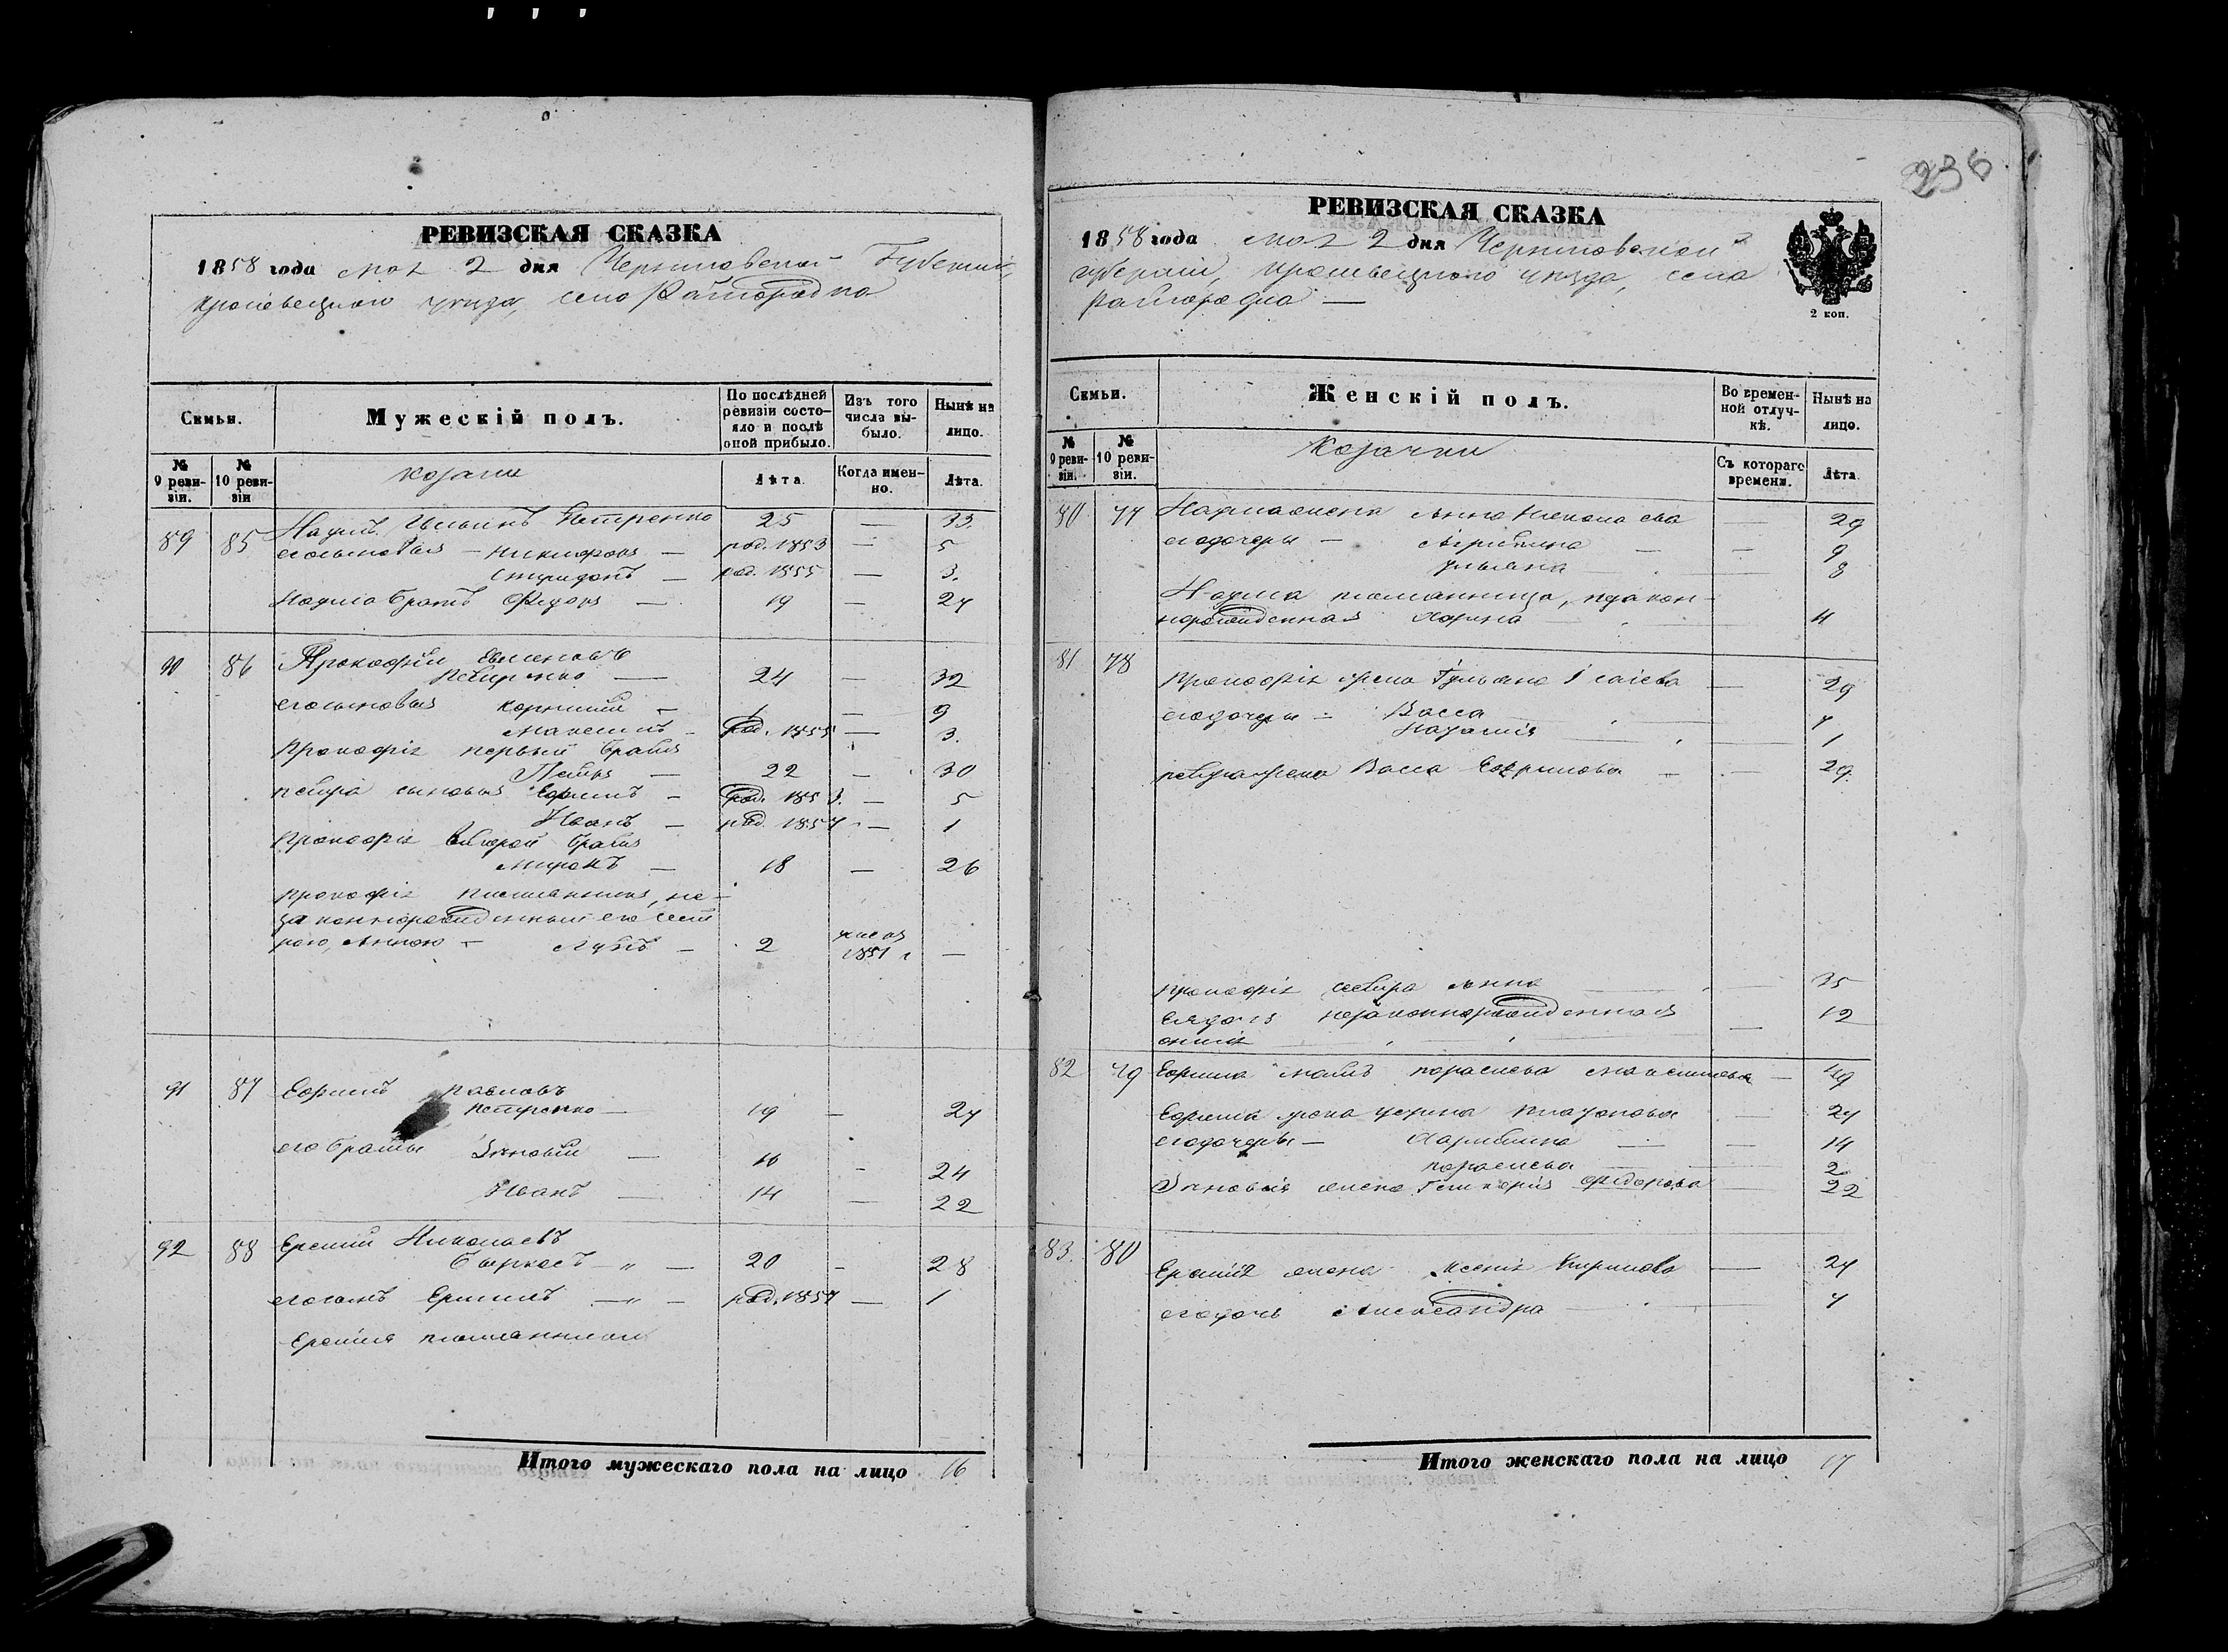 236
РЕВИЗСКАЯ СКАЗКА
1858 года мая 2 дня Черниговской Губернии,
Кролевецкаго уезда, села Райгородка
Семьи.
Мужескій полъ.
По послѣдней ревизіи состояло и послѣ оной прибыло.
Изъ того числа выбыло.
Нынѣ на лицо.
№ 9 ревизіи.
№ 10 ревизіи
козаки
Лѣта.
Когда именно.
Лѣта.
89 85 Наумъ Ильинъ Петренко 25 — 33
его сыновья — Никифоръ — род. 1853 — 5
Спиридонъ — род. 1855 — 3.
Наума братъ Федоръ — 19 — 27
90 86 Прокофій
Петренко — 24 — 32
его сыновья Корнилий — 1 — 9
Максимъ — род. 1855 — 3.
Прокофія первый братъ
Петръ — 22 — 30
Петра сыновья Ефимъ — род. 1853. — 5
Иванъ — род. 1857 — 1
Прокофія второй братъ
Миронъ — 18 — 26
Прокофія племянникъ, не-
законнорожденный его сест
рою, Анною — 2 1851 —
91 87 Ефимъ Павловъ
Петренко — 19 — 27
его братья Зиновій — 16 — 24
Иванъ — 14 — 22
92 88 Еремій Николаевъ
20 — 28
его сынъ — род. 1857 — 1
Еремія племянники
Итого мужескаго пола на лицо 16
РЕВИЗСКАЯ СКАЗКА
1858 года мая 2 дня Черниговской
губерніи, Кролевецкаго уезда, села
Райгородка —
2 коп.
Семьи.
Женскій полъ.
Во временной отлучкѣ.
Нынѣ на лицо.
№ 9 ревизіи.
№ 10 ревизіи.
Козачки
Съ котораго времени.
Лѣта
80 77 Наума жена Анна Николаева — 29
его дочери — Агрипина — 9
Ульяна — 8
Наума племянница, незакон-
норожденная Марина — 11
81 78 Прокофія жена Гульяна Исаіева — 29
его дочери — Васса — 7
Наталія — 1
Петра жена Васса — 29.
Прокофія сестра Анна — 35
Ея дочь незаконнорожденная — 12
82 79 Ефима мать Параскева Максимова — 49
Ефима жена Платонова — 27
его дочери — 14
Параскева — 2
Зиновія жена Гликерія Федорова — 22
83. 80 Еремія жена Ксенія Кирилова — 27
его дочь Александра — 7
Итого женскаго пола на лицо 17